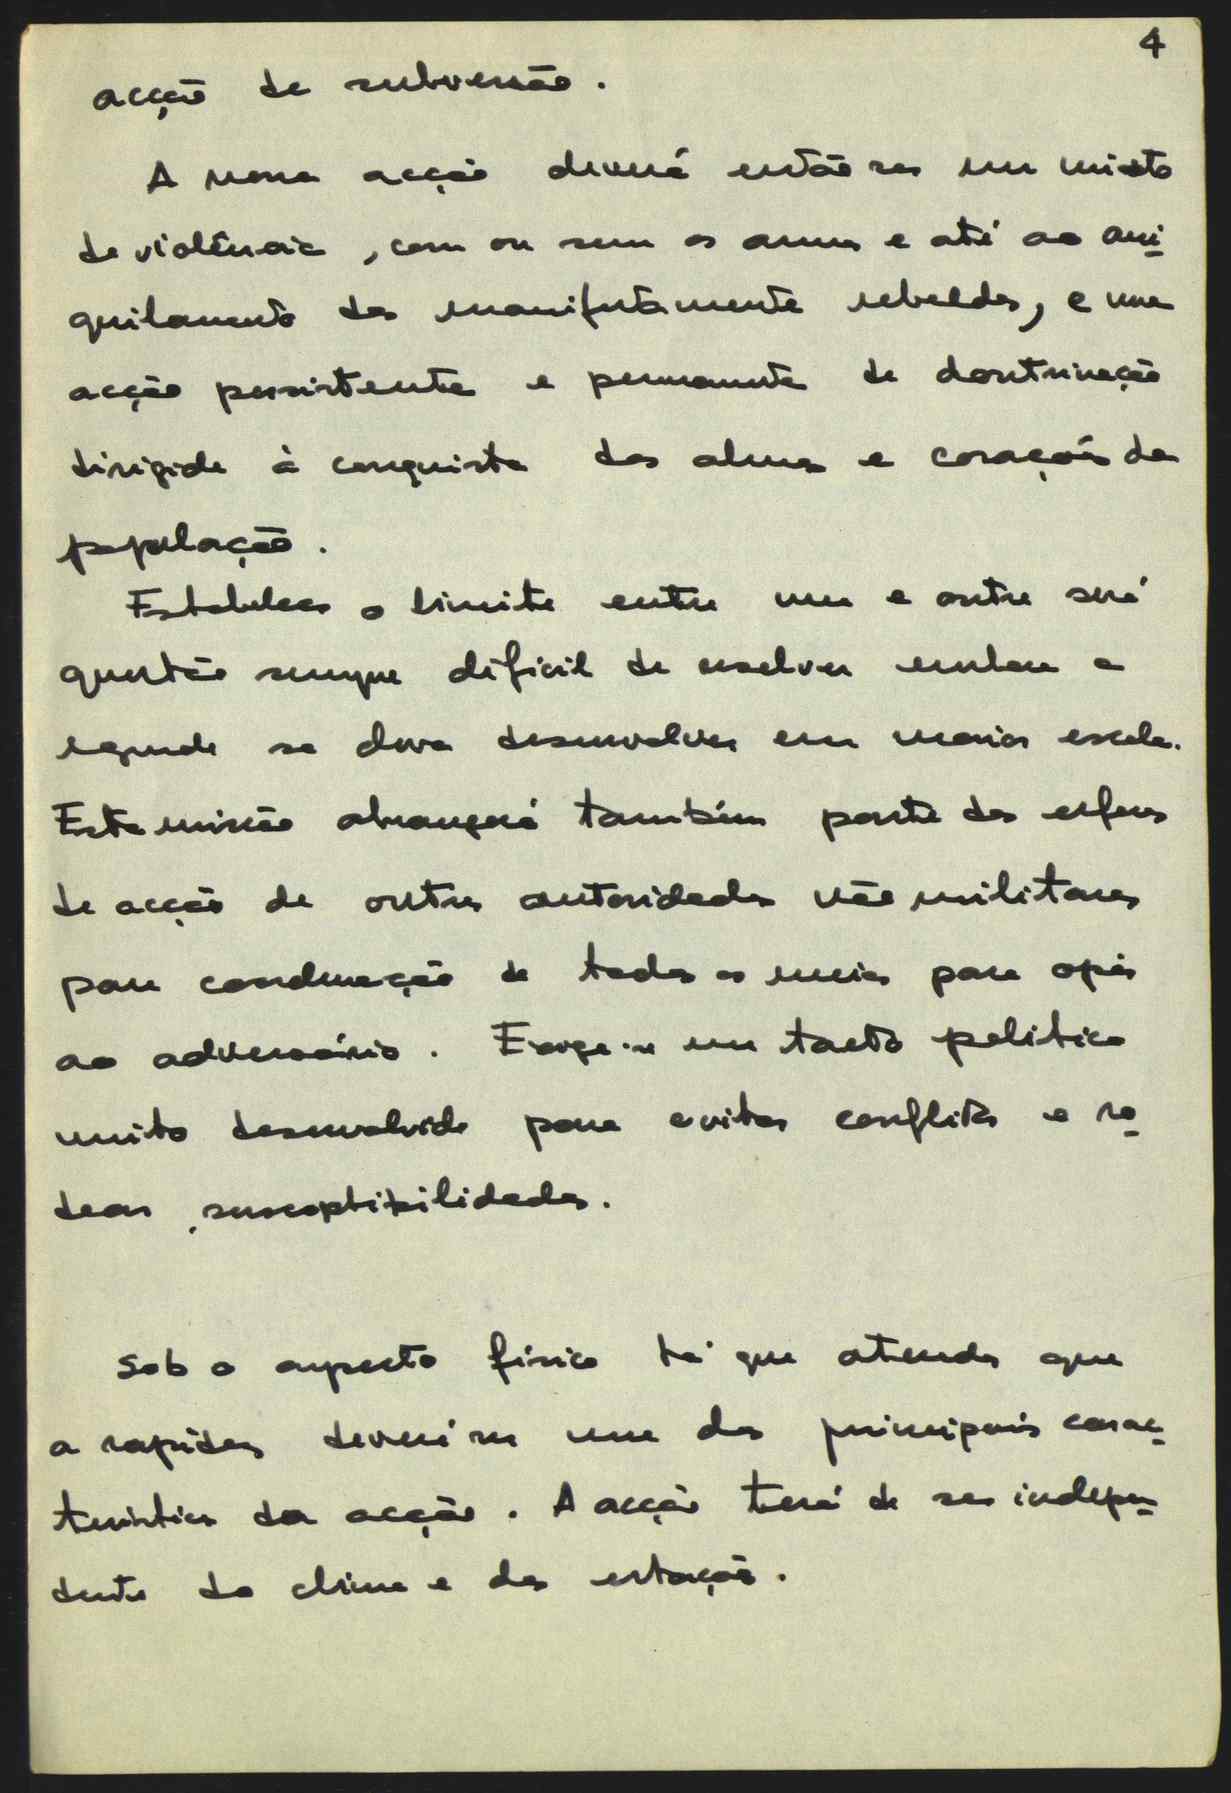 4
acção de subversão.
A nossa acção deverá então ser um misto
de violência, com ou sem as armas e até ao ani-
quilamento dos manifestamente rebeldes, e uma
acção persistente e permanente de doutrinação
dirigida à conquista das almas e corações da
população.
Estabelecer o limite entre um e outro será
questão sempre difícil de resolver embora a
segunda se deva desenvolver em maior escala.
Esta missão abrangerá também parte das esferas
de acção de outras autoridades não militares
para coordenação de todos os meios para opôr
ao adversário. Exige-se um tacto politico
muito desenvolvido para evitar conflitos e ro-
dear susceptibilidades.
Sob o aspecto físico há que atender que
a rapidez deverá ser uma das principais carac-
teristicas da acção. A acção terá de ser indepen-
dente do clima e da estação.